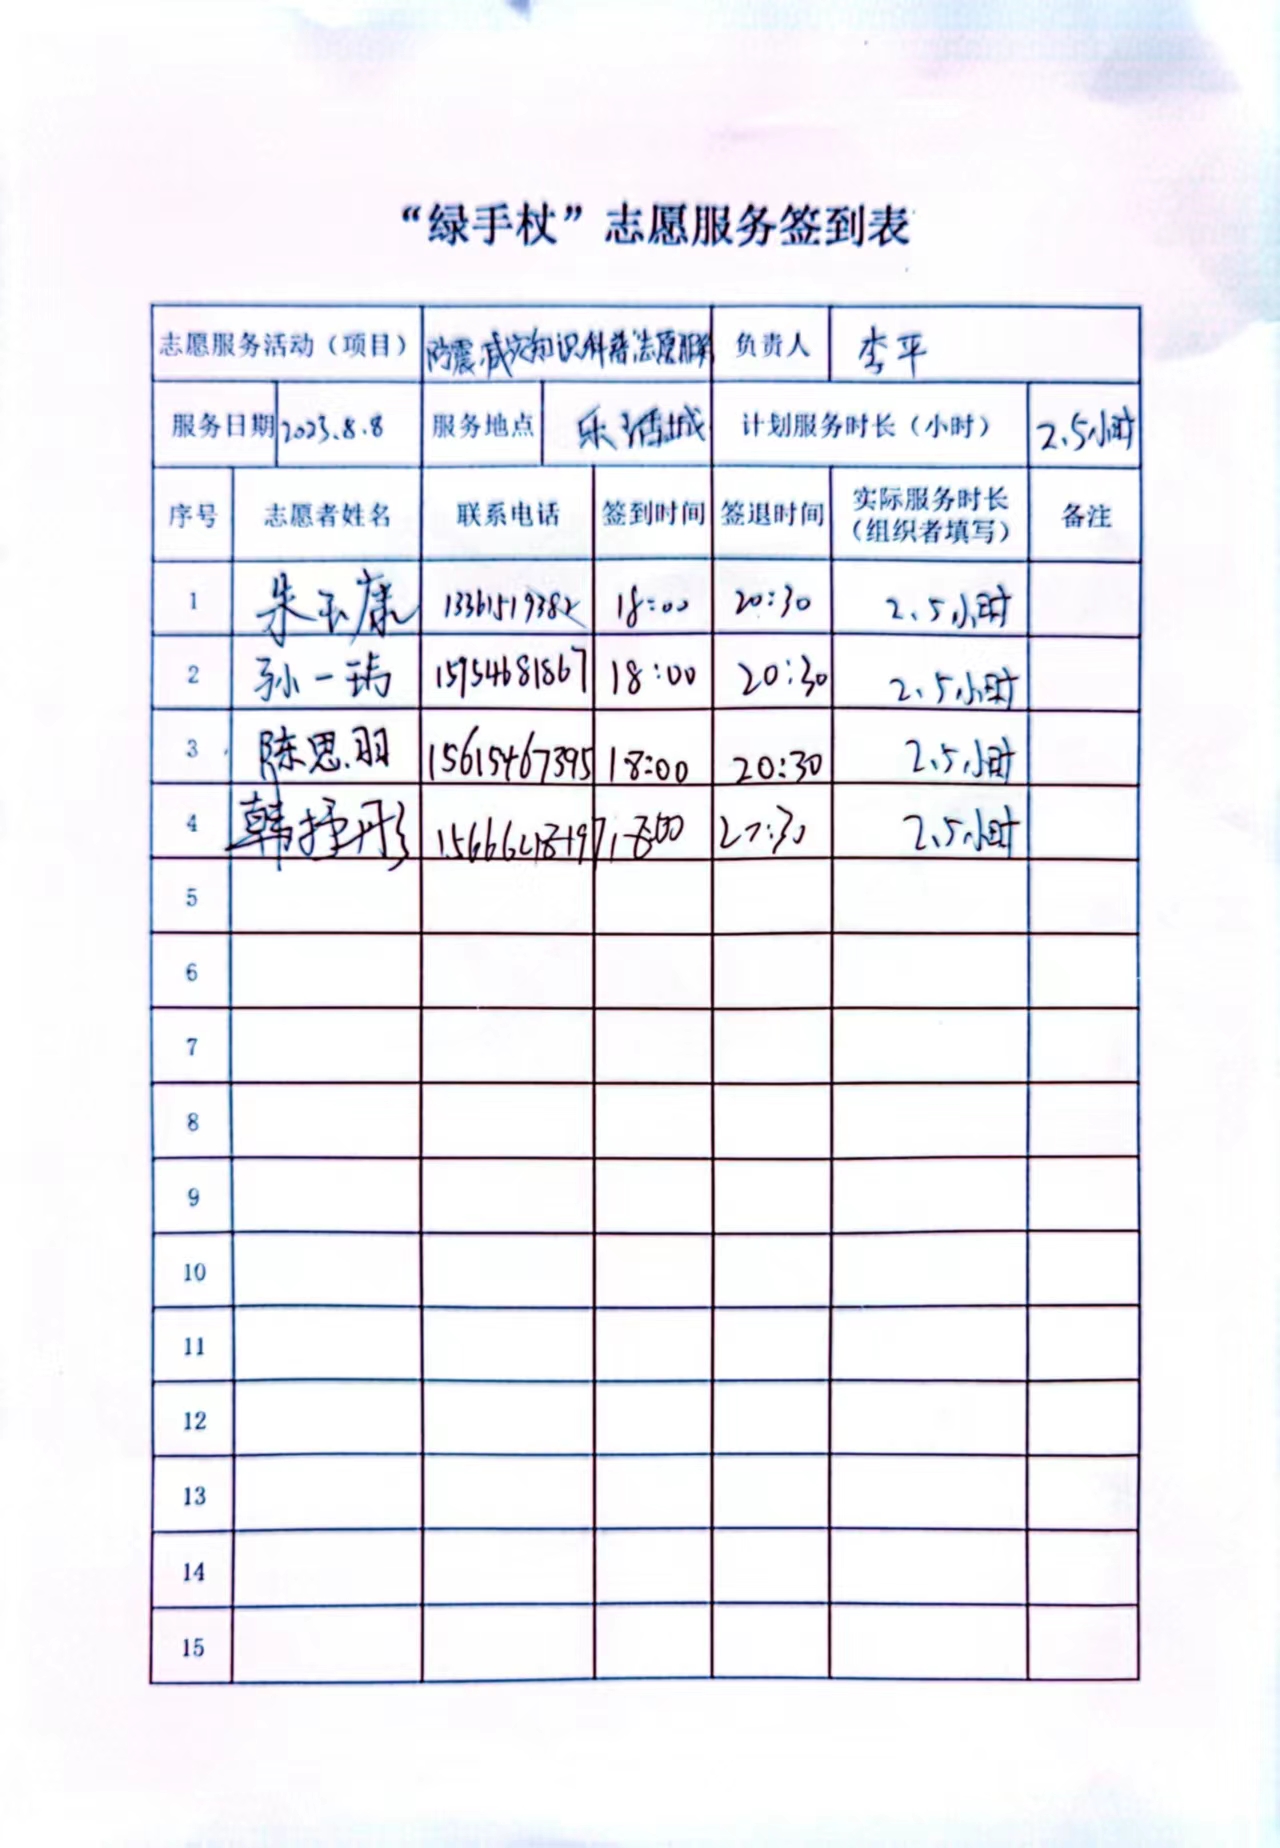 “绿手杖”志愿服务签到表
志愿服务活动（项目） 防震减灾知识科普志愿服务 负责人 李平
服务日期 2023.8.8 服务地点 乐活城 计划服务时长（小时） 2.5小时
序号 志愿者姓名 联系电话 签到时间 签退时间 实际服务时长（组织者填写） 备注
1 朱玉康 13361519382 18:00 20:30 2.5小时
2 孙一瑀 15954681867 18:00 20:30 2.5小时
3 陈思羽 15615467395 18:00 20:30 2.5小时
4 韩抒彤 18:00 20:30 2.5小时
5
6
7
8
9
10
11
12
13
14
15